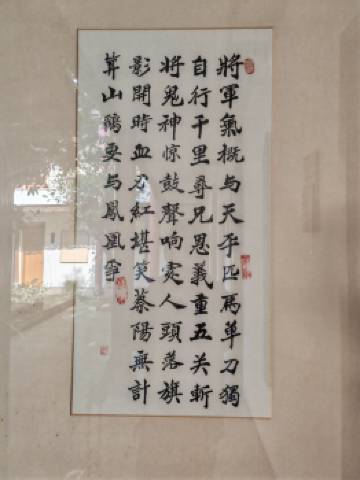 將軍氣概与天平匹馬单刀獨
自行千里尋兄恩義重五关斬
將鬼神惊鼓聲响處人頭落旗
影開時血刃紅堪笑蔡陽無計
算山鷄要与鳳凰爭